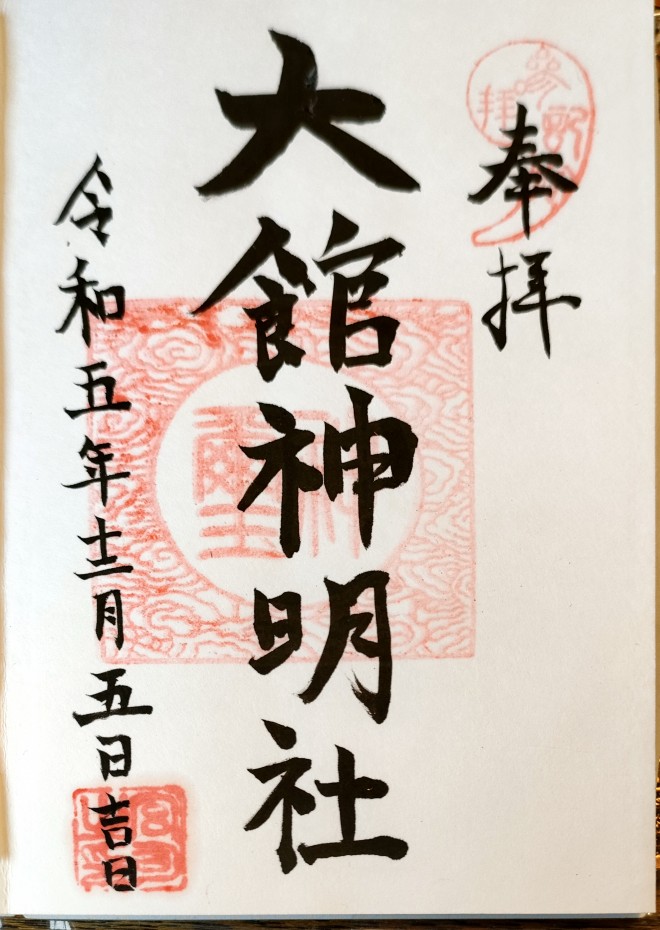 奉拝
大館神明社
令和五年十二月五日吉日